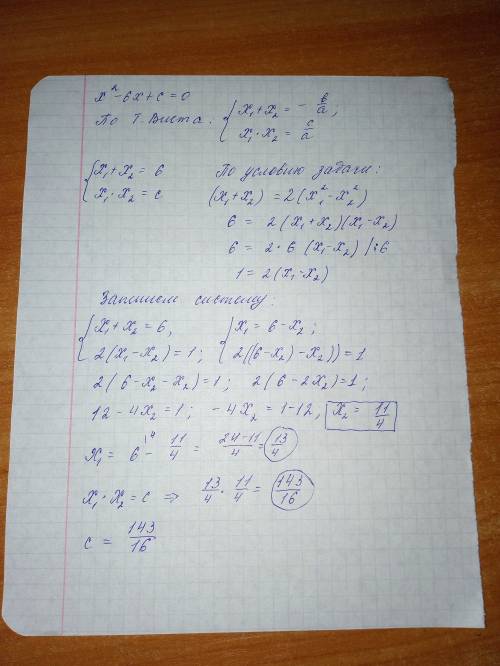 x² - 6x + c = 0
По т. Виета: { x₁ + x₂ = - b/a ;
x₁ · x₂ = c/a
{ x₁ + x₂ = 6
x₁ · x₂ = c
По условию задачи:
(x₁ + x₂) = 2(x₁² - x₂²)
6 = 2(x₁ + x₂)(x₁ - x₂)
6 = 2 · 6 (x₁ - x₂) |:6
1 = 2(x₁ - x₂)
Запишем систему:
{ x₁ + x₂ = 6,
2(x₁ - x₂) = 1;
{ x₁ = 6 - x₂;
2((6 - x₂) - x₂)) = 1
2(6 - x₂ - x₂) = 1; 2(6 - 2x₂) = 1;
12 - 4x₂ = 1; -4x₂ = 1 - 12, x₂ = 11/4
x₁ = 6 ⁽⁴ - 11/4 = 24-11/4 = 13/4
x₁ · x₂ = c ⇒ 13/4 · 11/4 = 143/16
c = 143/16